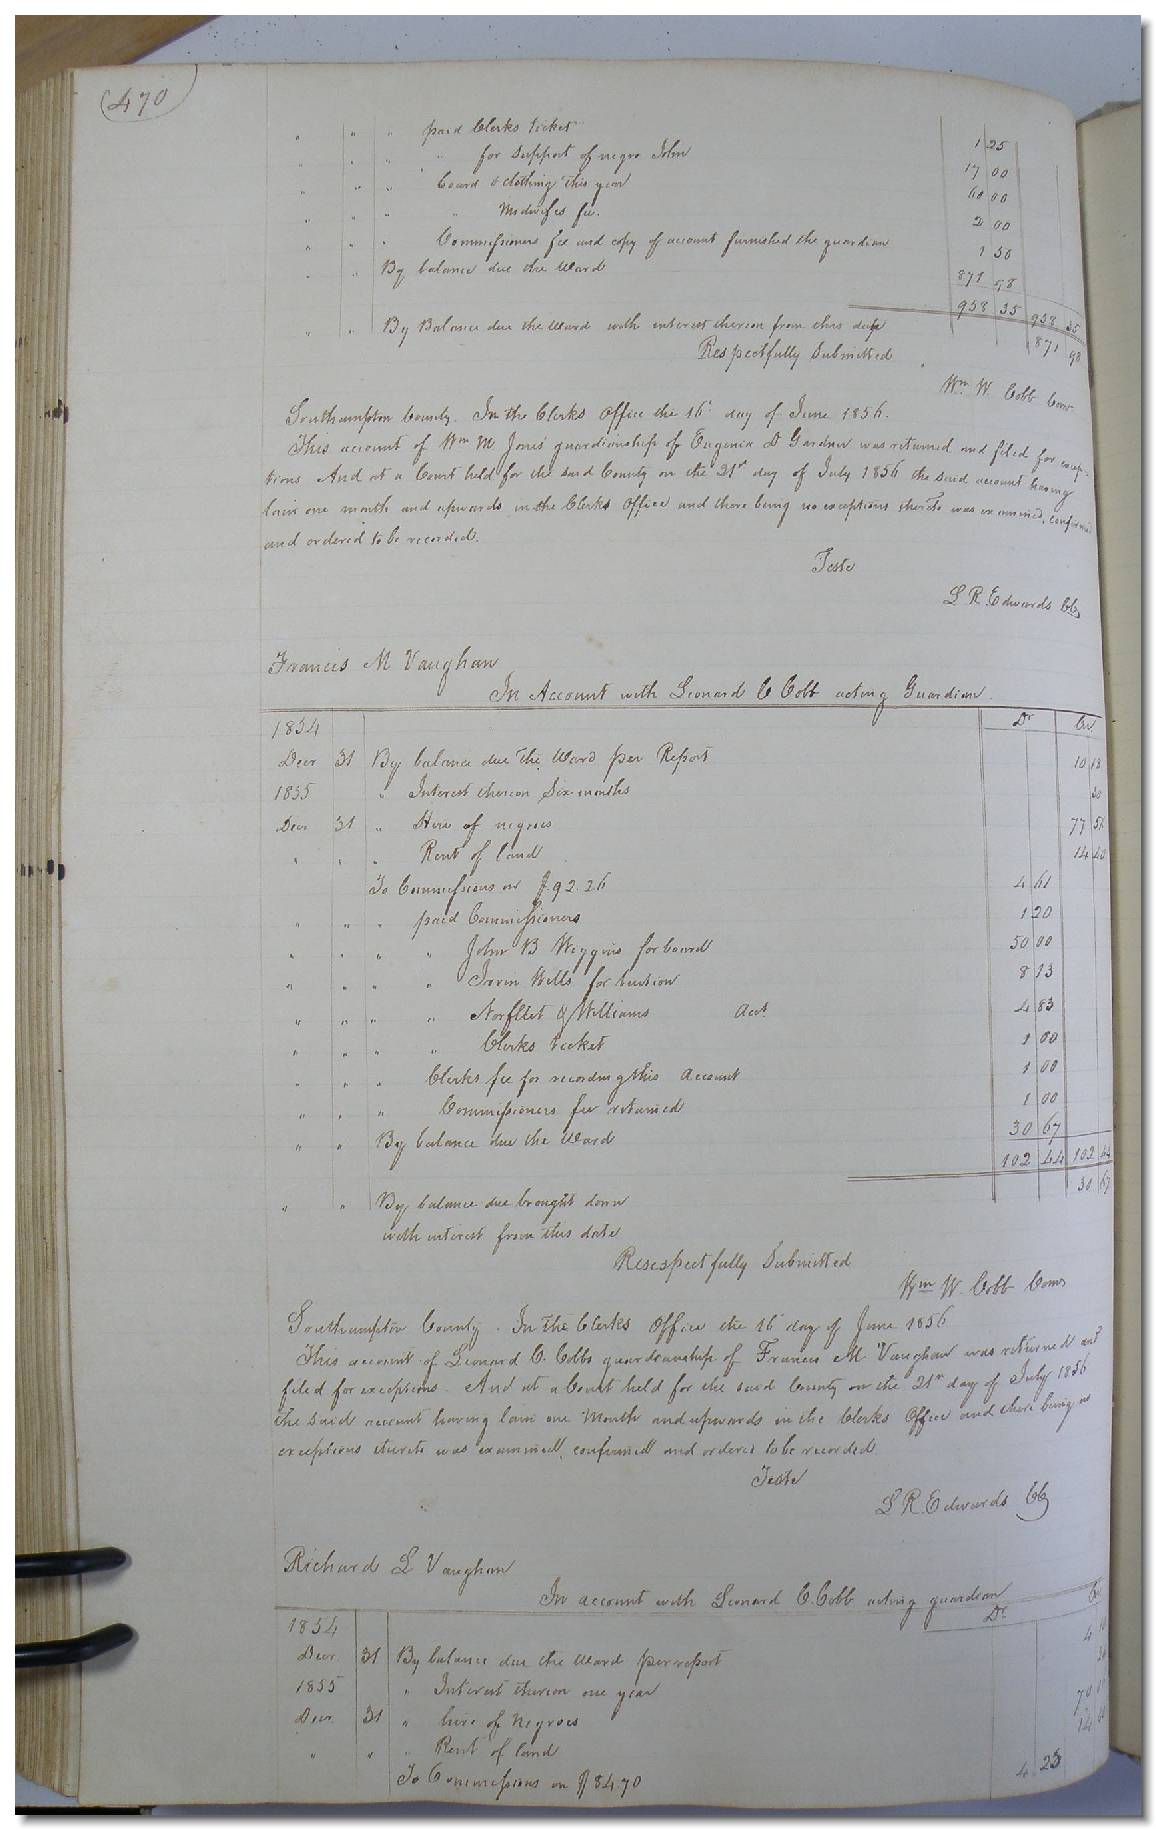 470
" " " paid Clerks ticket 1 25
" " " " for support of negro John 17 00
" " " board & clothing this year 60 00
" " " " Midwifes fee. 2 00
" " " Commissioners fee and copy of account furnished the guardian 1 50
" " By balance due the Ward 871 98
958 35 958 35
" " By Balance due the Ward with interest thereon from this day 871 98
Respectfully Submitted
Wm. W. Cobb Comr.
Southampton County. In the Clerks Office the 16 day of June 1856.
This account of Wm M. Jones guardianship of Eugenia D Gardner was returned and filed for excep-
tions And at a Court held for the said County on the 21st day of July 1856 the said account having
lain one month and upwards in the Clerks Office and there being no exceptions thereto was examined, confirmed
and ordered to be recorded.
Teste
L R. Edwards Clk
Francis M Vaughan
In Account with Leonard C Cobb acting Guardian.
1854 Dr Cr
Decr 31 By balance due the Ward per Report 10 18
1855 " Interest thereon Six months 30
Decr 31 " Hire of negroes 77 56
" " " Rent of land 14 40
To Commissions on $92.26 4 61
" " " paid Commissioners 1 20
" " " " John B Wiggins for board 50 00
" " " " Irvin Wells for tuition 8 13
" " " " Norfleet & Williams Act. 4 83
" " " " Clerks ticket 1 00
" " " Clerks fee for recording this Account 1 00
" " " Commissioners fee retained 1 00
" " By balance due the Ward 30 67
102 44 102 44
" " By balance due brought down 30 67
with interest from this date
Resespectfully Submitted
Wm W. Cobb Comr
Southampton County. In the Clerks Office the 16 day of June 1856
This account of Leonard C. Cobbs guardianship of Francis M. Vaughan was returned and
filed for exceptions. And at a Court held for the said County on the 21st day of July 1856
the said account having lain one Month and upwards in the Clerks Office and there being no
exceptions thereto was examined, confirmed and ordered to be recorded.
Teste
L R. Edwards Clk
Richard L Vaughan
In account with Leonard C. Cobb acting guardian
1854 Dr. Cr
Decr. 31 By balance due the Ward per report 4
1855 " Interest thereon one year
Decr. 31 " hire of Negroes 70
" " " Rent of land 14
To Commissions on $84.70 4 23